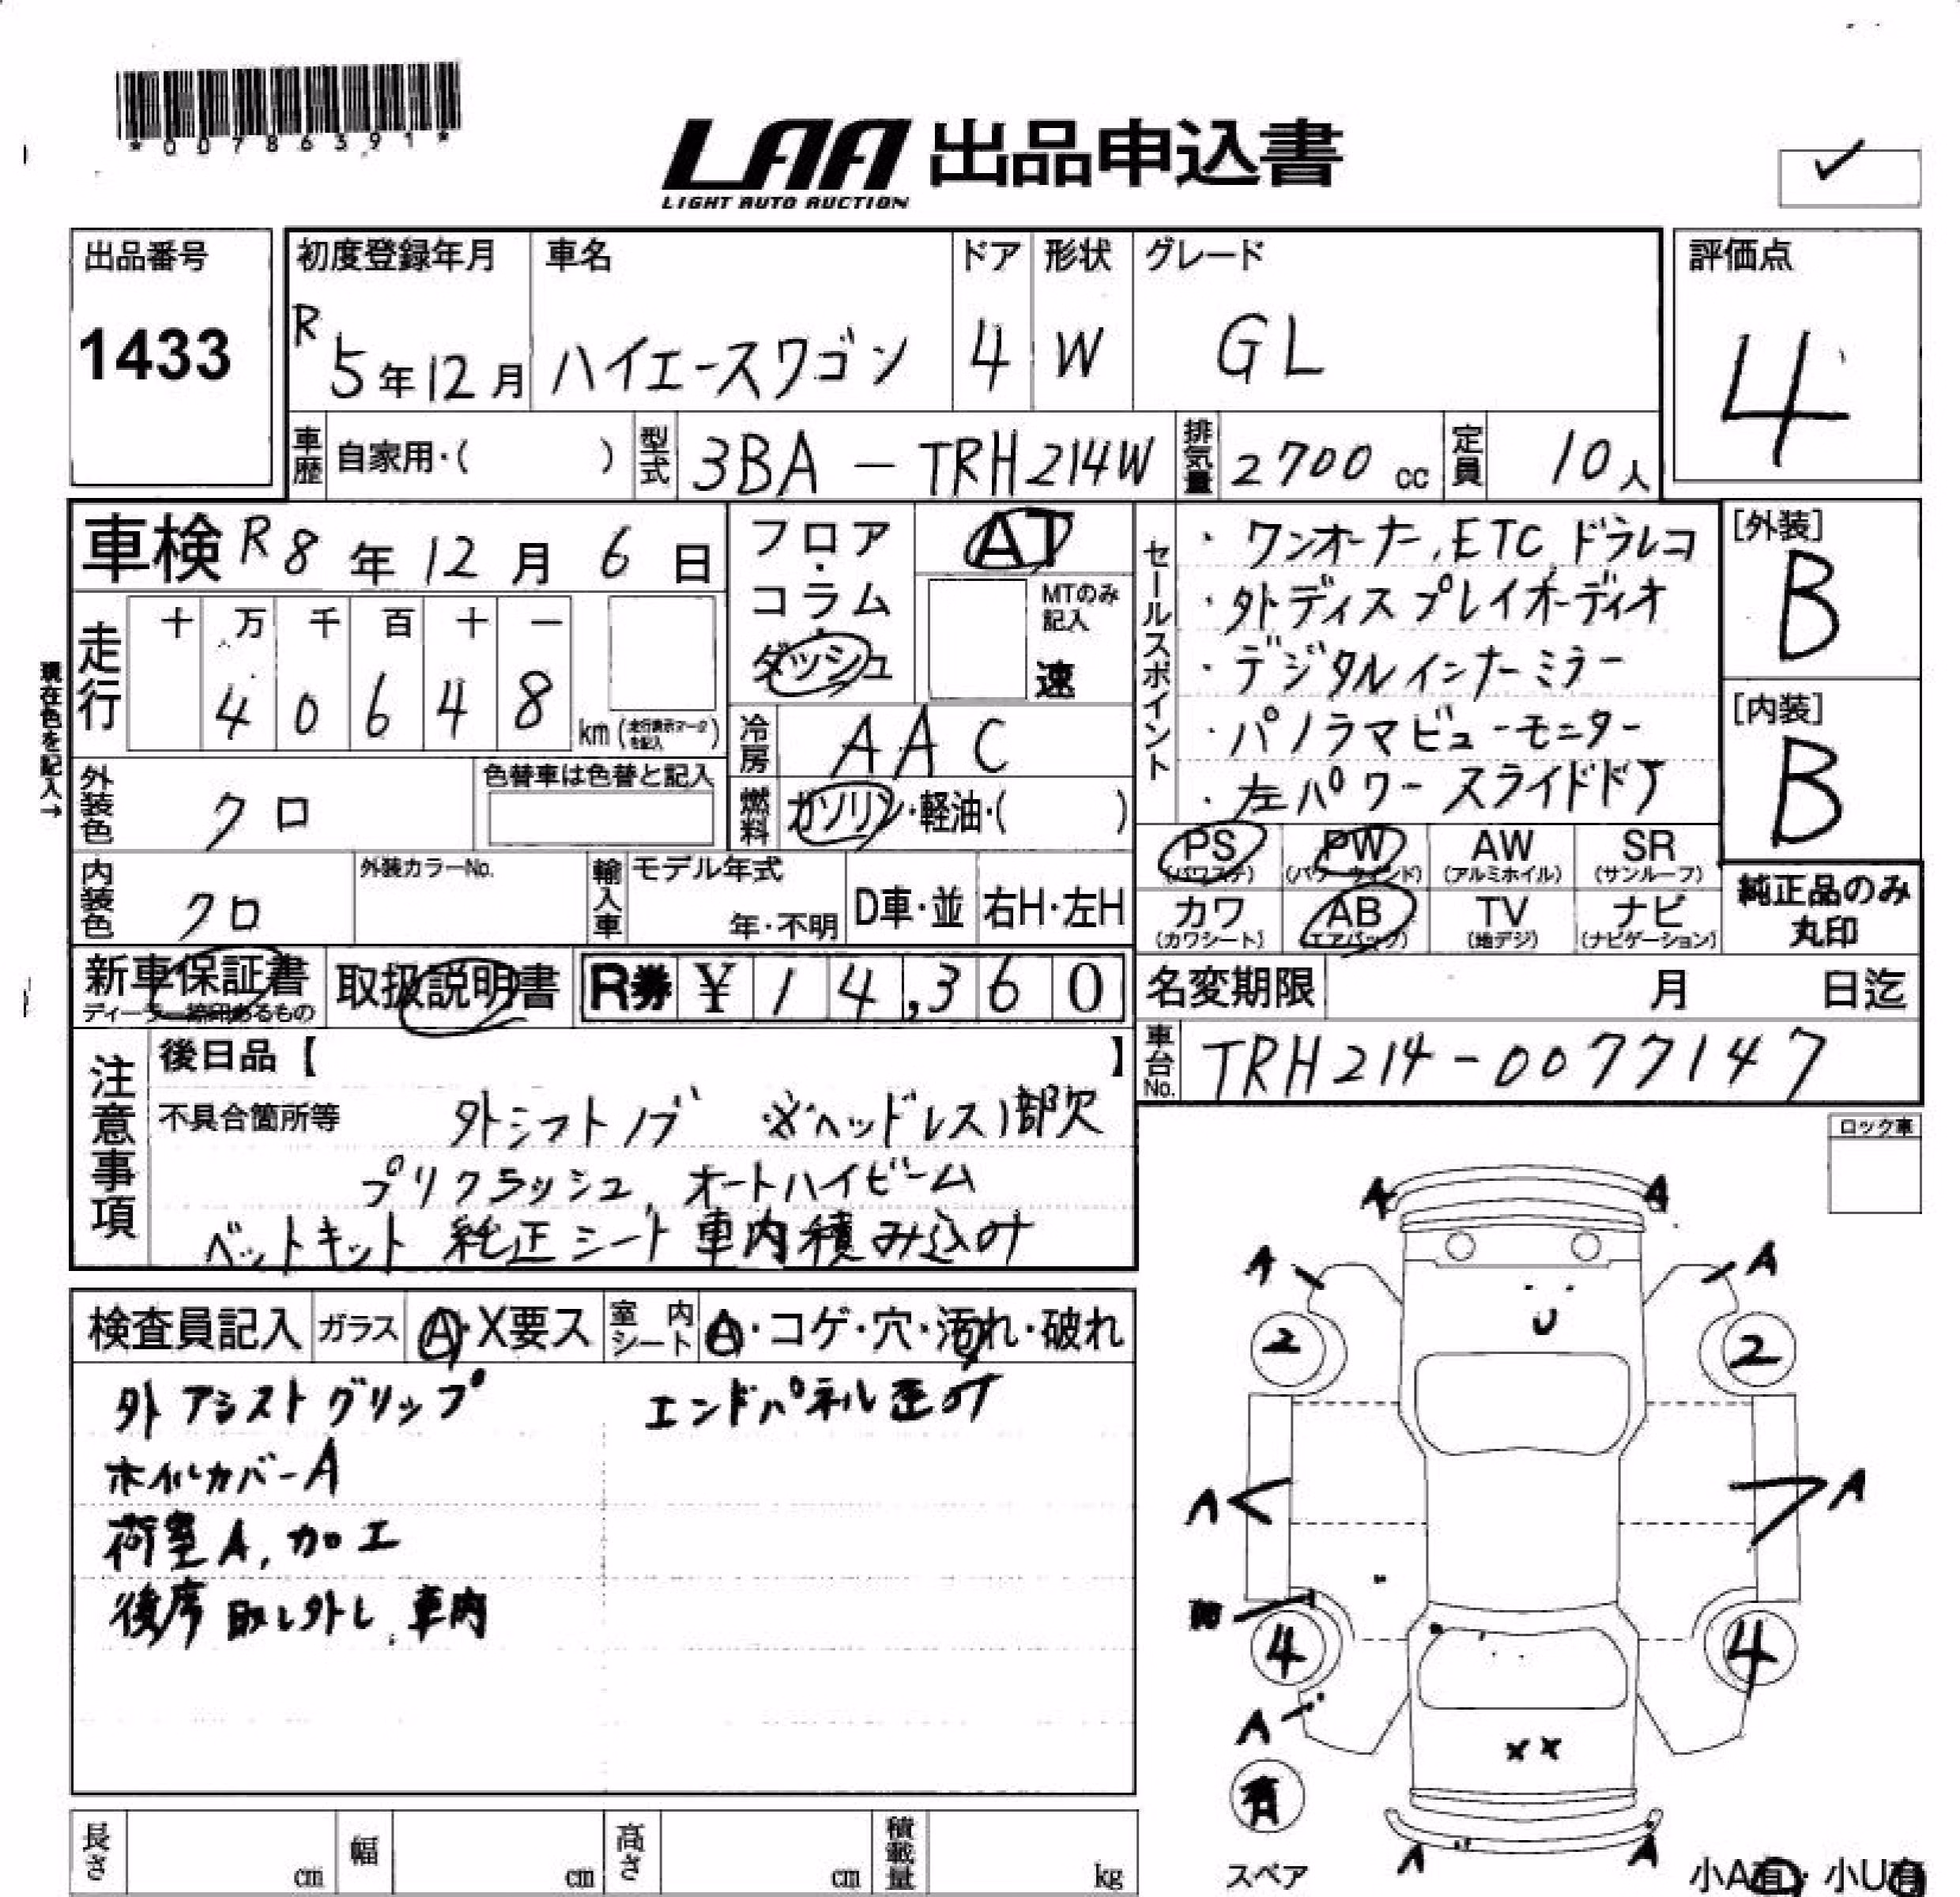 *00786391*
LAA 出品申込書
LIGHT AUTO AUCTION
出品番号
1433
初度登録年月
R 5年12月
車名
ハイエースワゴン
ドア
4
形状
W
グレード
GL
評価点
4
車歴 自家用・( )
型式 3BA-TRH214W
排気量 2700 cc
定員 10人
車検 R8年12月6日
現在色を記入→
走行 十 万 千 百 十 一
4 0 6 4 8 km (走行表示マークを記入)
フロア・コラム・ダッシュ
AT
MTのみ記入
速
冷房 AAC
燃料 ガソリン・軽油・( )
外装色 クロ
色替車は色替と記入
内装色 クロ
外装カラーNo.
輸入車 モデル年式
年・不明
D車・並
右H・左H
セールスポイント
・ワンオーナー,ETC,ドラレコ
・外ディスプレイオーディオ
・デジタルインナーミラー
・パノラマビューモニター
・左パワースライドドア
[外装]
B
[内装]
B
PS (パワステ) PW (パワーウインド) AW (アルミホイル) SR (サンルーフ)
カワ (カワシート) AB (エアバック) TV (地デジ) ナビ (ナビゲーション)
純正品のみ丸印
新車保証書
ディーラー捺印あるもの
取扱説明書
R券 ¥14,360
名変期限 月 日迄
車台No. TRH214-0077147
注意事項
後日品【 】
不具合箇所等 外シフトノブ ※ヘッドレス1部欠
プリクラッシュ,オートハイビーム
ベットキット 純正シート車内積み込み
ロック車
検査員記入 ガラス A・X要ス 室内シート A・コゲ・穴・汚れ・破れ
外アシストグリップ エンドパネル歪み
ホイルカバーA
荷室A,加工
後席取り外し,車内
A A
A A
U
2 2
A A
4 4
A
XX
有
スペア
A A
小A有・小U有
長さ cm 幅 cm 高さ cm 積載量 kg